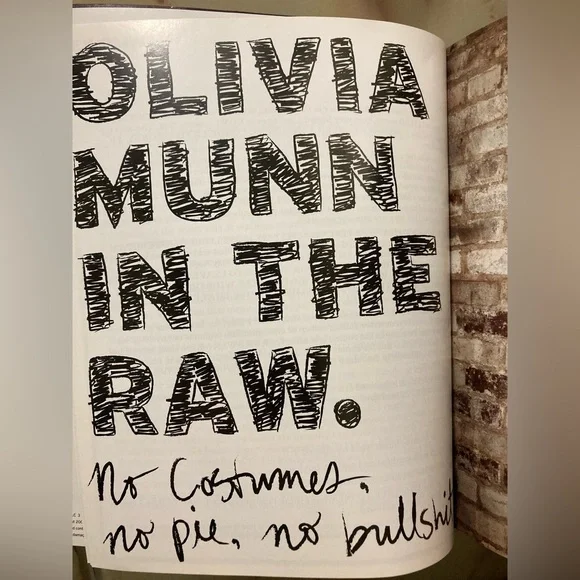 OLIVIA
MUNN
IN THE
RAW.
no Costumes.
no pie. no bullshit